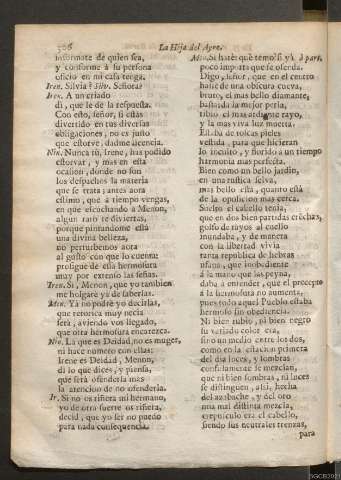 506
La Hija del Ayre.
informate de quien sea,
y conforme à su persona
oficio en mi casa tenga.
Iren. Silvia? Silv. Señora?
Iren. A un criado
di, que le dè la respuesta.
Con esto, señor, si estàs
divertido en tus diversas
obligaciones, no es justo
que estorve, dadme licencia.
Nin. Nunca tù, Irene, has podido
estorvar, y mas en esta
ocasion, donde no son
los despachos la materia
que se trata; antes aora
estimo, que à tiempo vengas,
en que escuchando à Menon,
algun rato te diviertas,
porque pintandome està
una divina belleza,
no perturbemos aora
al gusto con que lo cuenta:
prosigue de essa hermosura
muy por extenso las señas.
Iren. Sì, Menon, que yo tambien
me holgarè yà de saberlas.
Men. Yà no podrè yo decirlas,
que retorica muy necia
serà, aviendo vos llegado,
que otra hermosura encarezca.
Nin. La que es Deidad, no es muger,
ni hace numero con ellas:
Irene es Deidad, Menon,
di lo que dices, y piensa,
que serà ofenderla mas
la atencion de no ofenderla.
Ir. Si no os riñera mi hermano,
yo de otra suerte os riñera,
decid, que yo ser no puedo
para nada consequencia.
Men. Si harè: què temo? si yà à part.
poco importa que se ofenda.
Digo, señor, que en el centro
hallè de una obscura cueva,
bruto, el mas bello diamante,
bastarda la mejor perla,
tibio el mas ardiente rayo,
y la mas viva luz muerta.
Estaba de toscas pieles
vestida, para que hicieran
lo inculto, y florido à un tiempo
harmonia mas perfecta.
Bien como un bello jardin,
en una rustica selva,
mas bello està, quanto està
de la oposicion mas cerca.
Suelto el cabello tenia,
que en dos bien partidas crenchas,
golfo de rayos al cuello
inundaba, y de manera
con la libertad vivia
tanta republica de hebras
ufana, que inobediente
à la mano que las peyna,
daba à entender, que el precepto
à la hermosura no aumenta,
pues todo aquel Pueblo estaba
hermoso sin obediencia.
Ni bien rubio, ni bien negro
su variado color era,
sino un medio entre los dos,
como en la estacion primera
del dia luces, y sombras
confusamente se mezclan,
que ni bien sombras, ni luces
se distinguen, assi, hecha
del azabache, y del oro
una mal distinta mezcla,
crepusculo era el cabello,
siendo sus neutrales trenzas,
para